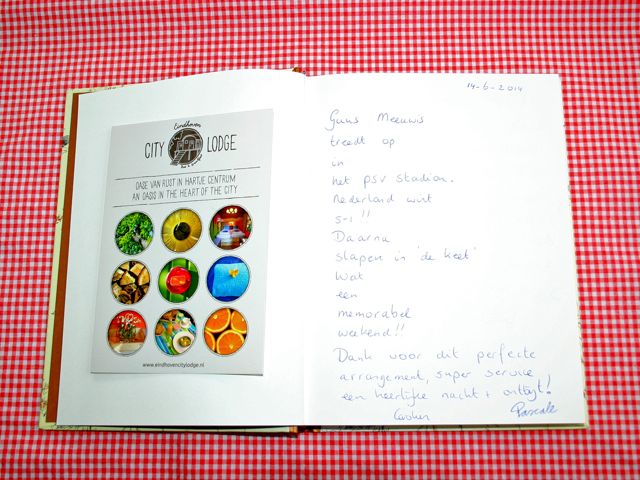 Eindhoven
CITY LODGE
OASE VAN RUST IN HARTJE CENTRUM
AN OASIS IN THE HEART OF THE CITY
www.eindhovencitylodge.nl
14-6-2014
Guus Meeuwis
treedt op
in
het psv stadion.
Nederland wint
5-1!!
Daarna
slapen in 'de keet'
Wat
een
memorabel
weekend!!
Dank voor dit perfecte
arrangement, super service
een heerlijke nacht + ontbijt!
Pascale